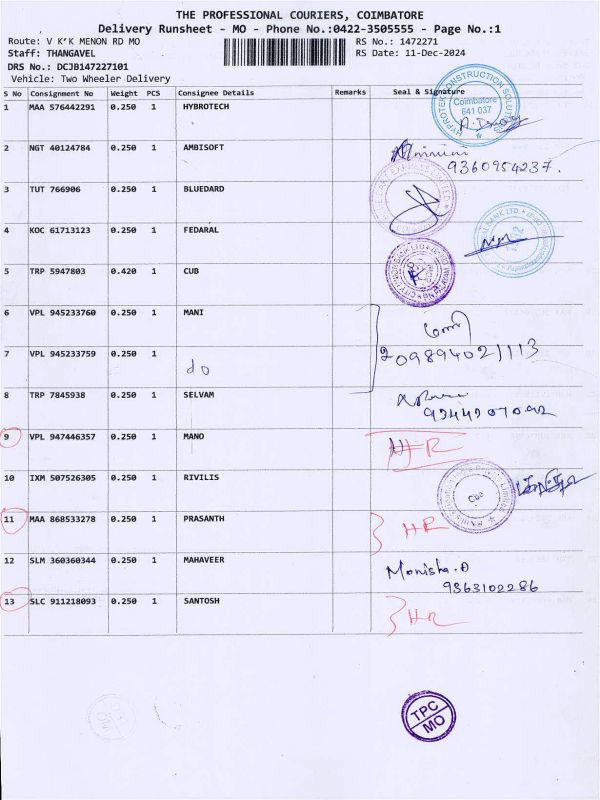 THE PROFESSIONAL COURIERS, COIMBATORE
Delivery Runsheet - MO - Phone No.:0422-3505555 - Page No.:1
Route: V K'K MENON RD MO RS No.: 1472271
Staff: THANGAVEL RS Date: 11-Dec-2024
DRS No.: DCJB147227101
Vehicle: Two Wheeler Delivery
S No Consignment No Weight PCS Consignee Details Remarks Seal & Signature
1 MAA 576442291 0.250 1 HYBROTECH
HYPROTEK CONSTRUCTION SOLUTIONS Coimbatore 641 037
2 NGT 40124784 0.250 1 AMBISOFT
9360954237.
3 TUT 766906 0.250 1 BLUEDARD
4 KOC 61713123 0.250 1 FEDARAL
5 TRP 5947803 0.420 1 CUB
6 VPL 945233760 0.250 1 MANI
7 VPL 945233759 0.250 1 do
09894021113
8 TRP 7845938 0.250 1 SELVAM
9 VPL 947446357 0.250 1 MANO HR
10 IXM 507526305 0.250 1 RIVILIS
11 MAA 868533278 0.250 1 PRASANTH HR
12 SLM 360360344 0.250 1 MAHAVEER Monisha.D
9363102286
13 SLC 911218093 0.250 1 SANTOSH HR
TPC
MO